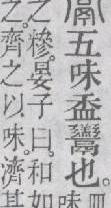 五味盉𩱧也。
味
之糝。晏子曰。和如
之。齊之以味。濟其